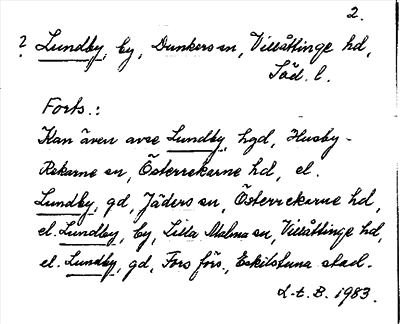 2.
? Lundby, by, Dunkers sn, Villåttinge hd,
Söd. l.
Forts.:
Kan även avse Lundby, hgd, Husby-
Rekarne sn, Österrekarne hd, el.
Lundby, gd, Jäders sn, Österrekarne hd,
el. Lundby, by, Lilla Malma sn, Villåttinge hd,
el. Lundby, gd, Fors förs., Eskilstuna stad.
L.t. B. 1983.